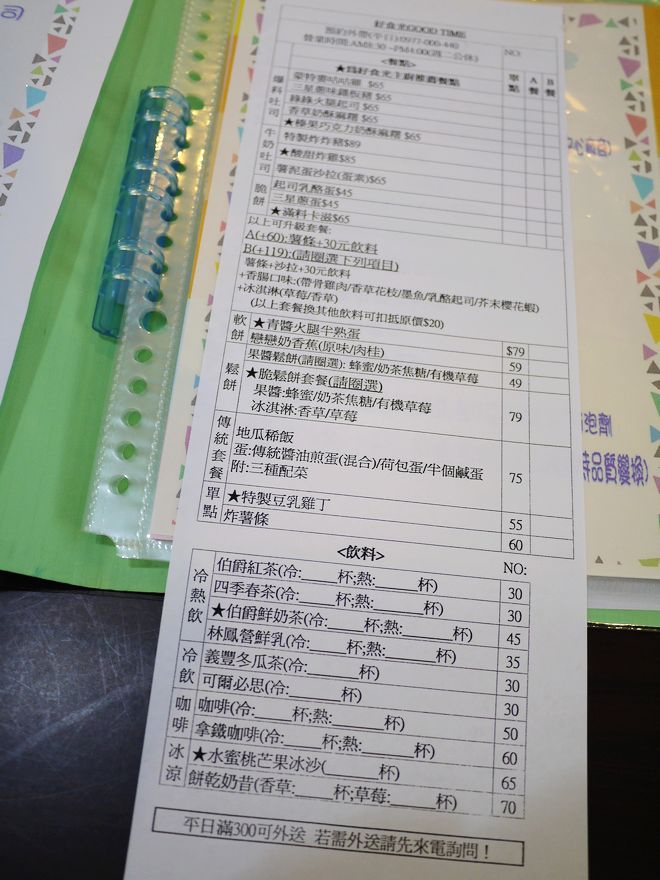 好食光GOOD TIME
預約外帶(平日):0977-006-440
營業時間:AM8:30 ~PM4:00(週二公休)
<餐點> NO:
★爲好食光主廚推薦餐點 單點 A餐 B餐
爆料吐司
蒙特婁咕咕雞 $65
三星蔥味鐵板豬 $65
綠綠火腿起司 $65
香草奶酥麻糬 $65
★榛果巧克力奶酥麻糬 $65
牛奶吐司
特製炸炸豬$89
★酸甜炸雞$85
薯泥蛋沙拉(蛋素)$65
脆餅
起司乳酪蛋$45
三星蔥蛋$45
★滿料卡滋$65
以上可升級套餐:
A(+60):薯條+30元飲料
B(+119):(請圈選下列項目)
薯條+沙拉+30元飲料
+香腸口味:(帶骨雞肉/香草花枝/墨魚/乳酪起司/芥末櫻花蝦)
+冰淇淋(草莓/香草)
(以上套餐換其他飲料可扣抵原價$20)
軟餅
★青醬火腿半熟蛋 $79
戀戀奶香蕉(原味/肉桂) 59
鬆餅
果醬鬆餅(請圈選): 蜂蜜/奶茶焦糖/有機草莓 49
★脆鬆餅套餐(請圈選)
果醬:蜂蜜/奶茶焦糖/有機草莓 79
冰淇淋:香草/草莓
傳統套餐
地瓜稀飯
蛋:傳統醬油煎蛋(混合)/荷包蛋/半個鹹蛋 75
附:三種配菜
單點
★特製豆乳雞丁 55
炸薯條 60
<飲料> NO:
冷熱飲
伯爵紅茶(冷:_____杯;熱:_____杯) 30
四季春茶(冷:_____杯;熱:_____杯) 30
★伯爵鮮奶茶(冷:_____杯;熱:_____杯) 45
林鳳營鮮乳(冷:_____杯;熱:_____杯) 35
冷飲
義豐冬瓜茶(冷:_____杯) 30
可爾必思(冷:_____杯) 30
咖啡
咖啡(冷:_____杯;熱:_____杯) 50
拿鐵咖啡(冷:_____杯;熱:_____杯) 60
冰涼
★水蜜桃芒果冰沙(_____杯) 65
餅乾奶昔(香草:_____杯;草莓:_____杯) 70
平日滿300可外送 若需外送請先來電詢問！
泡劑
特品質變換)